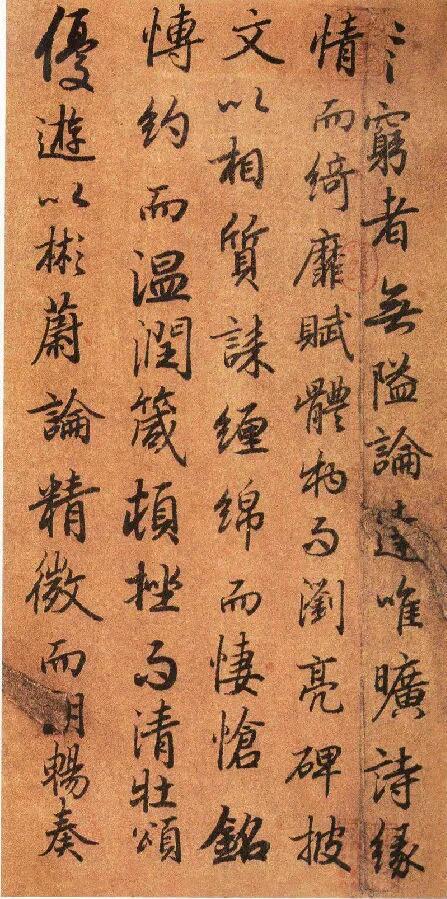 言窮者無隘論達唯曠詩緣
情而綺靡賦體物而瀏亮碑披
文以相質誄纏綿而悽愴銘
愽約而温潤箴頓挫而清壯頌
優遊以彬蔚論精微而朗暢奏